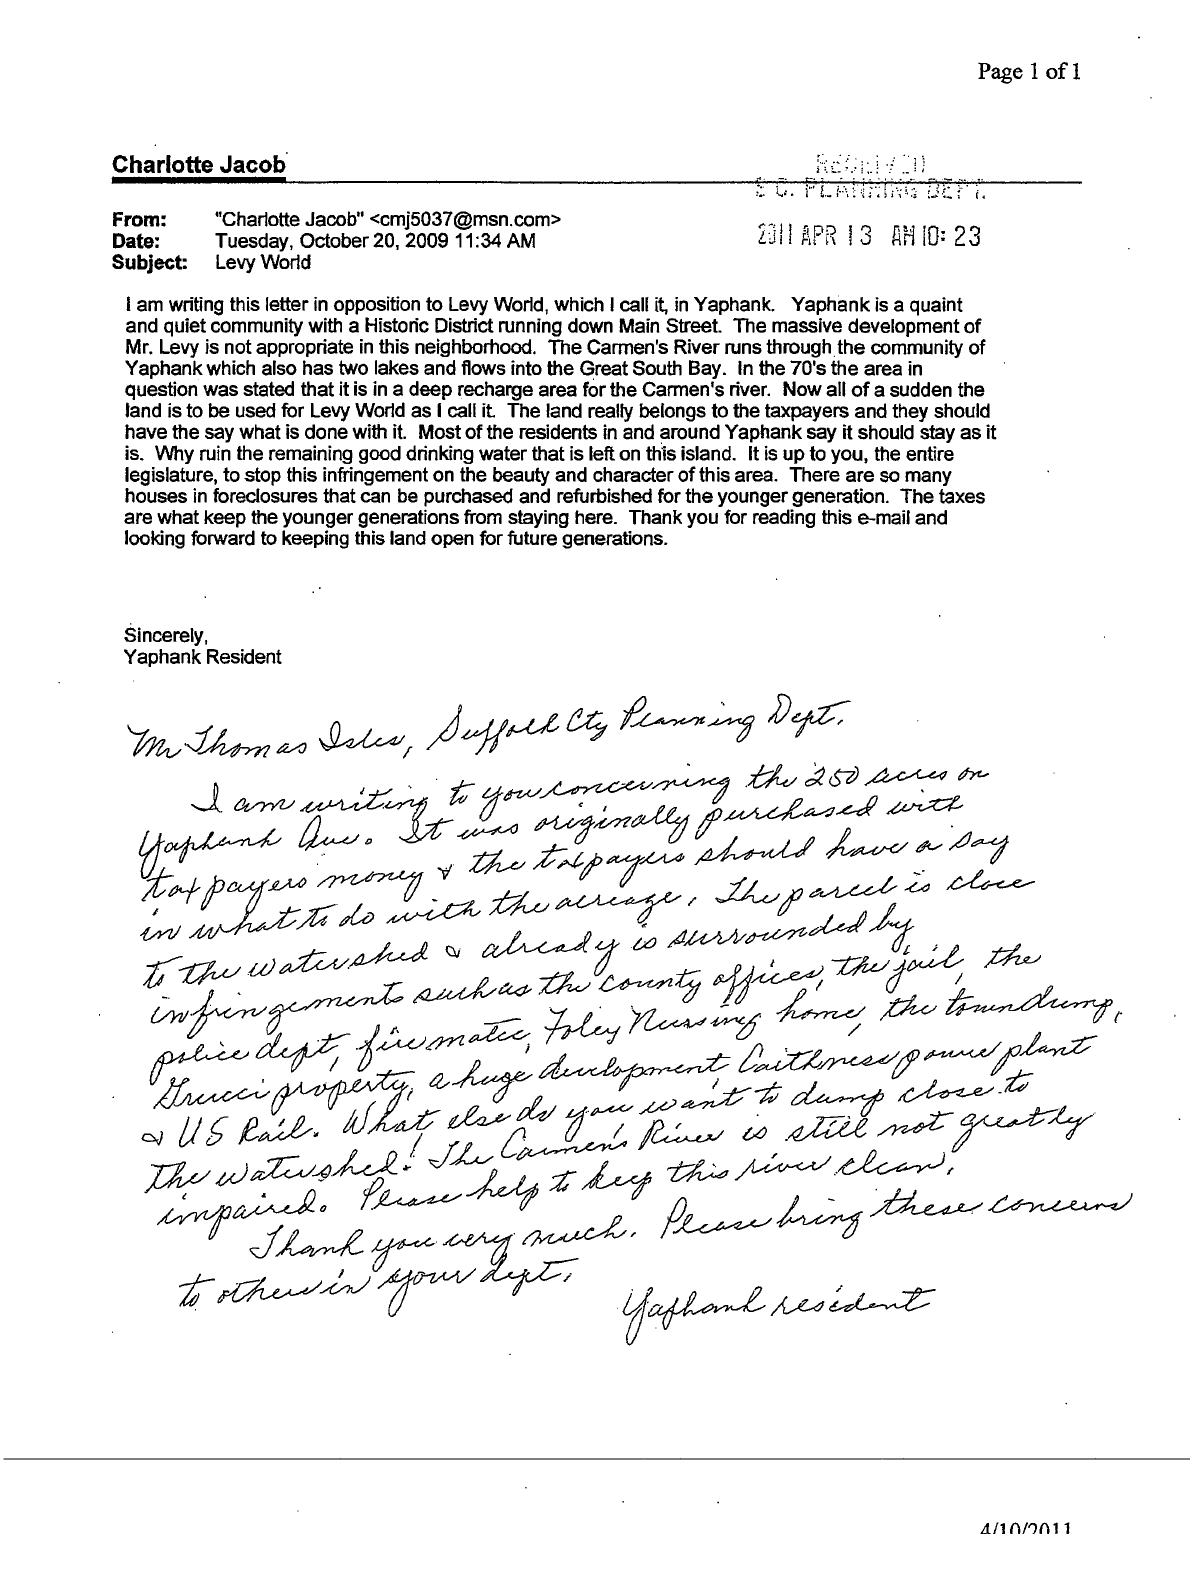 Page 1 of 1
Charlotte Jacob
RECEIVED
S.C. PLANNING DEPT.
From: "Charlotte Jacob" <cmj5037@msn.com>
Date: Tuesday, October 20, 2009 11:34 AM
Subject: Levy World
2011 APR 13 AM 10: 23
I am writing this letter in opposition to Levy World, which I call it, in Yaphank. Yaphank is a quaint
and quiet community with a Historic District running down Main Street. The massive development of
Mr. Levy is not appropriate in this neighborhood. The Carmen's River runs through the community of
Yaphank which also has two lakes and flows into the Great South Bay. In the 70's the area in
question was stated that it is in a deep recharge area for the Carmen's river. Now all of a sudden the
land is to be used for Levy World as I call it. The land really belongs to the taxpayers and they should
have the say what is done with it. Most of the residents in and around Yaphank say it should stay as it
is. Why ruin the remaining good drinking water that is left on this island. It is up to you, the entire
legislature, to stop this infringement on the beauty and character of this area. There are so many
houses in foreclosures that can be purchased and refurbished for the younger generation. The taxes
are what keep the younger generations from staying here. Thank you for reading this e-mail and
looking forward to keeping this land open for future generations.
Sincerely,
Yaphank Resident
Mr Thomas Isles, Suffolk Cty Planning Dept.
I am writing to you concerning the 250 acres on
Yaphank Ave. It was originally purchased with
taxpayers money & the taxpayers should have a say
in what to do with the acreage. The parcel is close
to the watershed & already is surrounded by
infringements such as the county offices, the jail, the
police dept, firematic, Foley Nursing home, the town dump,
Grucci property, a huge development, Caithness power plant
& US Rail. What else do you want to dump close to
the watershed! The Carmen's River is still not greatly
impaired. Please help to keep this river clean.
Thank you very much. Please bring these concerns
to others in your dept.
Yaphank resident
4/10/2011